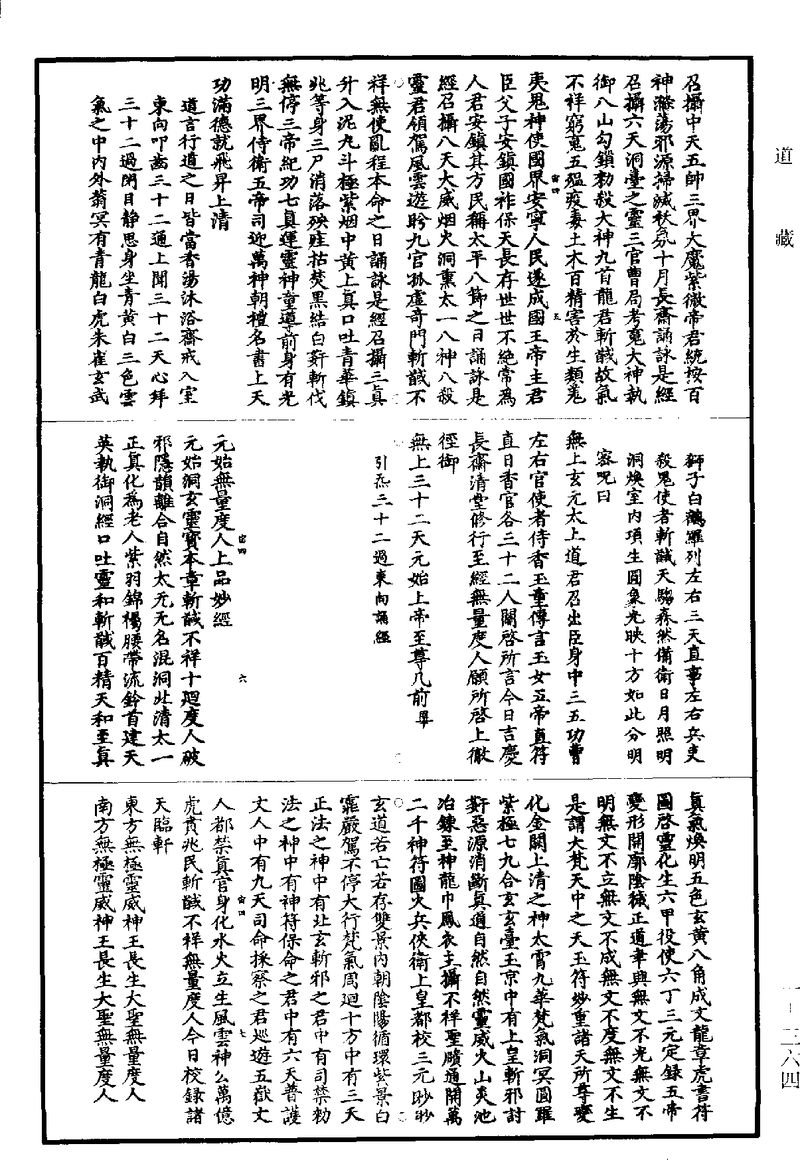 道藏
召攝中天五帥三界大魔紫微帝君統按百
神滌蕩邪源掃滅秋氛十月長齋誦詠是經
召攝六天洞臺之靈三官曹局考鬼大神執
御八山勾鎖勑殺大神九首龍君斬馘故氣
不祥窮鬼五瘟疫毒土木百精害於生類鬼
夷鬼神使國界安寧人民遂成國王帝主君
臣父子安鎮國祚保天長存世世不絶常為
人君安鎮其方民稱太平八節之日誦詠是
經召攝八天大威烟火洞熏太一八神八殺
靈君領駕風雲遊盻九宮孤虛奇門斬馘不
祥無使亂程本命之日誦詠是經召攝三真
升入泥九斗極紫烟中黃上真口吐青華鎮
兆等身三尸消落殃注枯焚黑結白姧斬伐
無停三帝紀功七真運靈神童導前身有光
明三界侍衛五帝司迎萬神朝禮名書上天
功滿德就飛昇上清
道言行道之日皆當香湯沐浴齋戒入室
東向叩齒三十二通上聞三十二天心拜
三十二過閉目静思身坐青黃白三色雲
氣之中内外蓊冥有青龍白虎朱雀玄武
宙四
五
獅子白鶴羅列左右三天直事左右兵吏
殺鬼使者斬馘天騶森然備衛日月照明
洞煥室内項生圓象光映十方如此分明
密呪曰
無上玄元太上道君召出臣身中三五功曹
左右官使者侍香玉童傳言玉女五帝直符
直日香官各三十二人關啓所言今日吉慶
長齋清堂修行至經無量度人願所啓上徹
徑御
無上三十二天元始上帝至尊几前畢
引炁三十二過東向誦經
元始無量度人上品妙經
宙四
六
元始洞玄靈寶本章斬馘不祥十廻度人破
邪隱韻離合自然太元无名混洞北清太一
正真化為老人紫羽錦裼腰帶流鈴首建天
英執御洞經口吐靈和斬馘百精天和至真
真氣煥明五色玄黃八角成文龍章虎書符
圖啓靈化生六甲役使六丁三元定錄五帝
變形開廓陰穢正道聿興無文不光無文不
明無文不立無文不成無文不度無文不生
是謂大梵天中之天玉符妙重諸天所尊變
化金闕上清之神太霄九華梵氣洞冥圓羅
紫極七九合玄玄臺玉京中有上皇斬邪討
姧惡源消斷真道自然自然靈威火山炎池
冶鍊至神龍巾鳳衣主攝不祥聖牘通開萬
二千神符圖火兵俠衛上皇都校三元眇眇
玄道若亡若存雙景内朝陰陽循環紫景白
霏嚴駕不停大行梵氣周迴十方中有三天
正法之神中有北玄斬邪之君中有司禁勑
法之神中有神符保命之君中有六天普護
文人中有九天司命採察之君巡遊五嶽文
人都禁真官身化水火立生風雲神公萬億
宙四
七
虎賁兆民斬馘不祥無量度人今日校錄諸
天臨軒
東方無極靈威神王長生大聖無量度人
南方無極靈威神王長生大聖無量度人
一-三六四